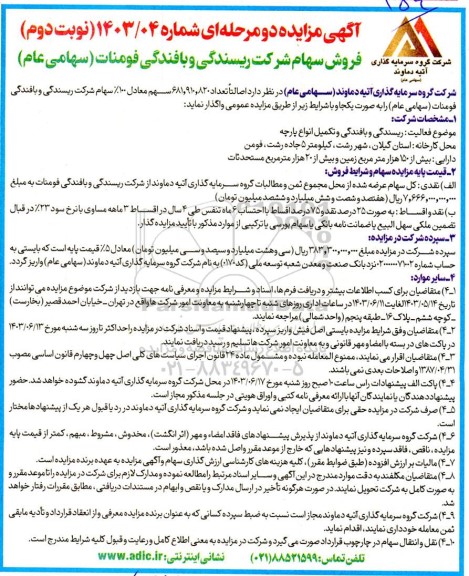 آگهی مزایده دو مرحله‌ای شماره ۱۴۰۳/۰۴ (نوبت دوم)
فروش سهام شرکت ریسندگی و بافندگی فومنات (سهامی عام)
شرکت گروه سرمایه گذاری
آتیه دماوند
(سهامی عام)
شرکت گروه سرمایه گذاری آتیه دماوند (سهامی عام) در نظر دارد اصالتاً تعداد ۶۸۱,۹۱۰,۸۲۰ سهم معادل ۱۰۰٪ سهام شرکت ریسندگی و بافندگی
فومنات (سهامی عام) را به صورت یکجا و با شرایط زیر از طریق مزایده عمومی واگذار نماید:
۱- مشخصات شرکت:
موضوع فعالیت: ریسندگی و بافندگی و تکمیل انواع پارچه
محل کارخانه: استان گیلان، شهر رشت، کیلومتر ۵ جاده رشت، فومن
دارایی: بیش از ۱۵۰ هزار متر مربع زمین و بیش از ۲۰ هزار متر مربع مستحدثات
۲- قیمت پایه مزایده سهام و شرایط فروش:
الف) نقدی: کل سهام عرضه شده از محل مجموع ثمن و مطالبات گروه سرمایه گذاری آتیه دماوند از شرکت ریسندگی و بافندگی فومنات به مبلغ
۷,۶۶۶,۰۰۰,۰۰۰,۰۰۰ ریال (هفتصد و شصت و شش میلیارد و ششصد میلیون تومان)
ب) نقد و اقساط: به صورت ۲۵ درصد نقد و ۷۵ درصد اقساط با احتساب ۶ ماه تنفس طی ۴ سال در اقساط ۳ ماهه مساوی با نرخ سود ۲۳٪ در قبال
تضمین ملکی سهل البیع یا ضمانت نامه بانکی یا سهام بورسی یا ترکیبی از موارد مذکور با تأیید مزایده گذار
۳- سپرده شرکت در مزایده:
سپرده شرکت در مزایده مبلغ ۳۸۳,۳۰۰,۰۰۰,۰۰۰ ریال (سی و هشت میلیارد و سیصد و سی میلیون تومان) معادل ۵٪ قیمت پایه است که بایستی به
نزد بانک صنعت و معدن شعبه توسعه ملی (کد ۰۱۷۰) به نام شرکت گروه سرمایه گذاری آتیه دماوند (سهامی عام) واریز گردد.
۴- سایر موارد:
۴-۱) متقاضیان برای کسب اطلاعات بیشتر و دریافت فرم ها، اسناد و شرایط مزایده و معرفی نامه جهت بازدید از شرکت موضوع مزایده می توانند از
تاریخ ۱۴۰۳/۰۵/۱۴ لغایت ۱۴۰۳/۰۶/۱۱ در ساعات اداری روزهای شنبه تا چهارشنبه به معاونت امور شرکت ها واقع در تهران-خیابان احمد قصیر (بخارست)
-کوچه ششم-پلاک ۱۶-طبقه پنجم (واحد شمالی) مراجعه نمایند.
۴-۲) متقاضیان وفق شرایط مزایده بایستی اصل فیش واریز سپرده، پیشنهاد قیمت و اسناد شرکت در مزایده را حداکثر تا روز سه شنبه مورخ ۱۴۰۳/۰۶/۱۳
در پاکت های در بسته با امضاء و مهر قانونی و به معاونت امور شرکت ها تسلیم و رسید دریافت نمایند.
۴-۳) متقاضیان اقرار می نمایند، ممنوع المعامله نبوده و مشمول ماده ۲۴ قانون اجرای سیاست های کلی اصل چهل و چهارم قانون اساسی مصوب
۱۳۸۷/۰۴/۳۱ و اصلاحات بعدی نمی باشند.
۴-۴) پاکت الف پیشنهادات راس ساعت ۱۰ صبح روز شنبه مورخ ۱۴۰۳/۰۶/۱۷ در محل شرکت گروه سرمایه گذاری آتیه دماوند گشوده خواهد شد. حضور
پیشنهاد دهندگان یا نمایندگان آنها با ارائه معرفی نامه کتبی و اوراق هویتی در جلسه مذکور مجاز است.
۴-۵) صرف شرکت در مزایده حقی برای متقاضیان ایجاد نمی نماید و شرکت گروه سرمایه گذاری آتیه دماوند در رد یا قبول هر یک از پیشنهادها مختار
است.
۴-۶) شرکت گروه سرمایه گذاری آتیه دماوند از پذیرش پیشنهادهای فاقد امضاء و مهر (اثر انگشت)، مخدوش، مشروط، مبهم، کمتر از قیمت پایه
مزایده، ناقص، فاقد سپرده و نیز پیشنهادهایی که خارج از موعد مقرر واصل شده باشد، معذور است.
۴-۷) مالیات بر ارزش افزوده (طبق ضوابط مقرر)، کلیه هزینه های کارشناسی ارزش گذاری سهام و آگهی مزایده به عهده برنده مزایده است.
۴-۸) متقاضیان مکلفند به دقت موارد مندرج در این آگهی و سایر اسناد مرتبط را مطالعه نموده و مدارک لازم برای شرکت در مزایده را تا موعد مقرر و
به صورت کامل به شرکت تحویل نمایند. در صورت هرگونه تأخیر در ارسال مدارک و یا نقص و ابهام در مستندات دریافتی، مطابق مقررات رفتار خواهد
شد.
۴-۹) شرکت گروه سرمایه گذاری آتیه دماوند مجاز است نسبت به ضبط سپرده کسانی که به عنوان برنده مزایده معرفی و از انعقاد قرارداد و تأدیه مابقی
ثمن معامله خودداری نمایند، اقدام نماید.
۴-۱۰) نقل و انتقال سهام در چارچوب قرارداد صورت می گیرد و شرکت در مزایده به معنی اطلاع کامل و رعایت و قبول کلیه شرایط مندرج است.
تلفن تماس: ۸۸۵۳۱۵۹۹ (۰۲۱) نشانی اینترنتی: www.adic.ir
۰۲۱-۸۸۳۴۹۶۷۰-۵